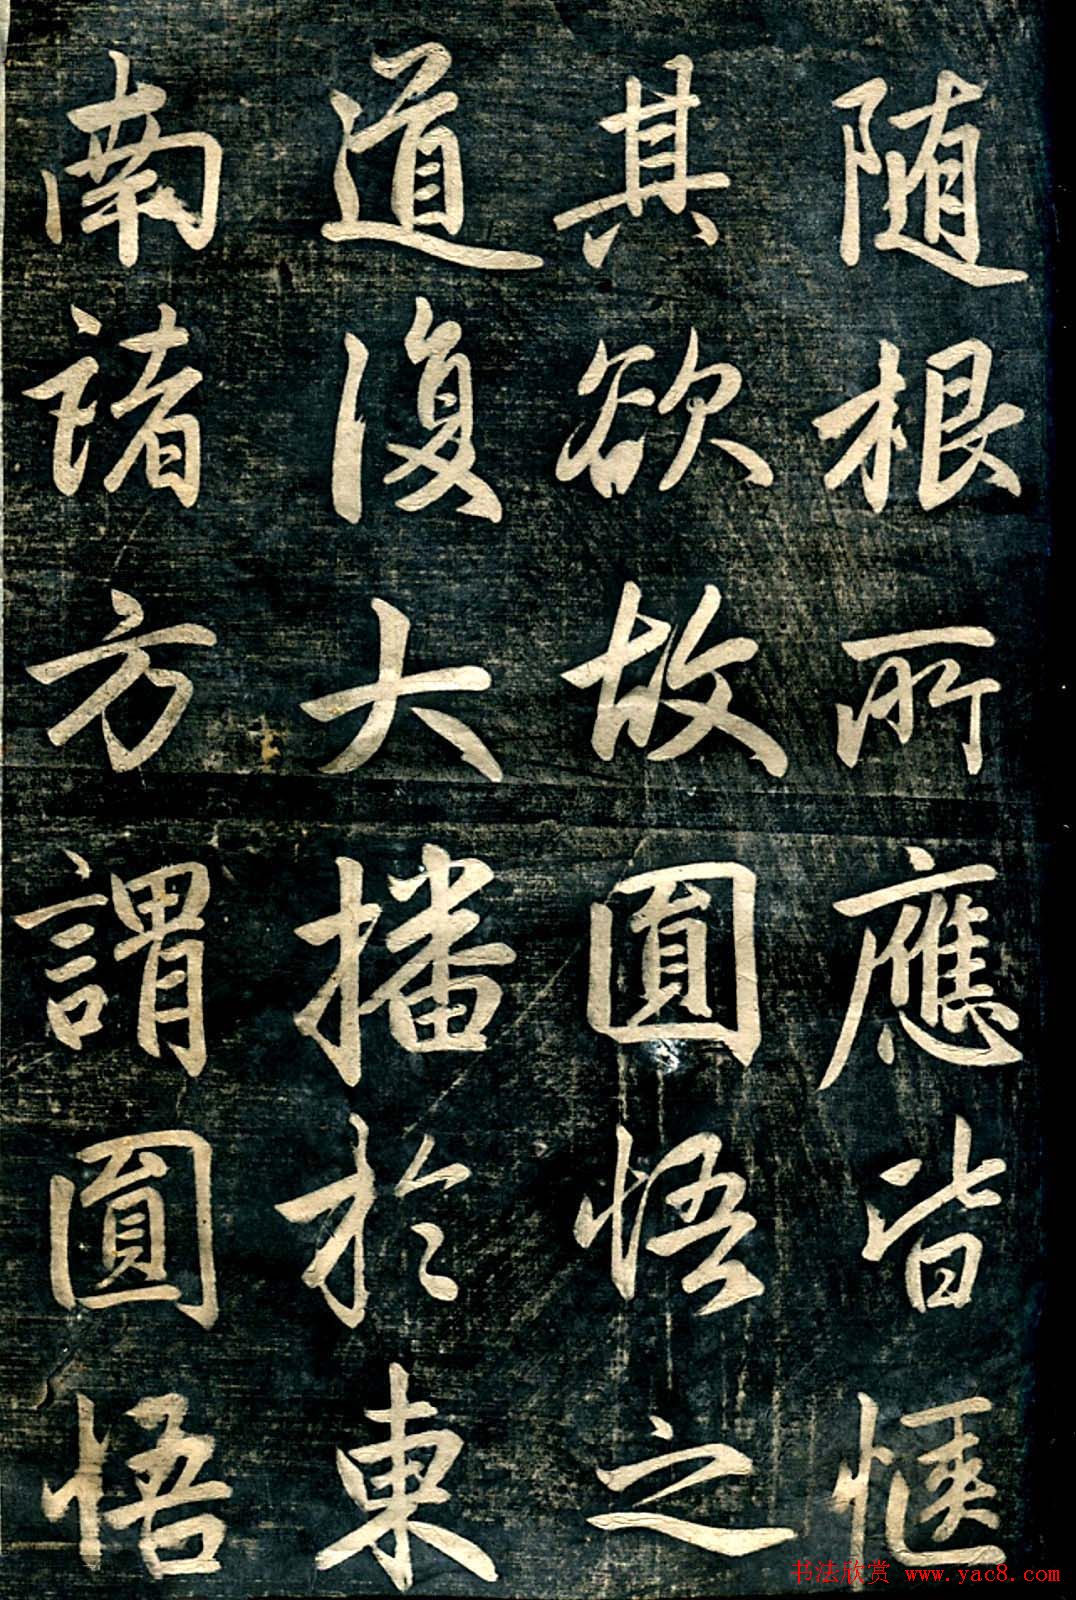 随根所應皆愜
其欲故圎悟之
道復大播於東
南諸方謂圎悟
书法欣赏 www.yac8.com